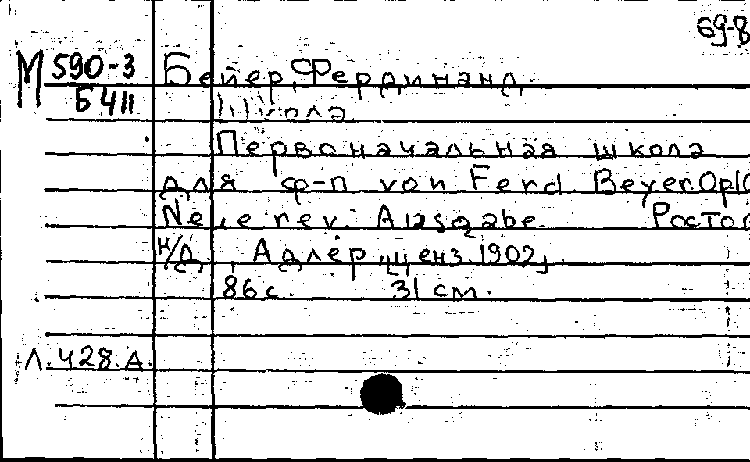 69-8
М 590-3
Б 411
Бейер, Фердинанд.
Школа
Первоначальная школа
для ф-п von Ferd Beyer Op 10
Neue rev. Ausgabe. Росто
н/Д, Адлер, ценз. 1902,
86 с. 31 см.
Л. 428. А.